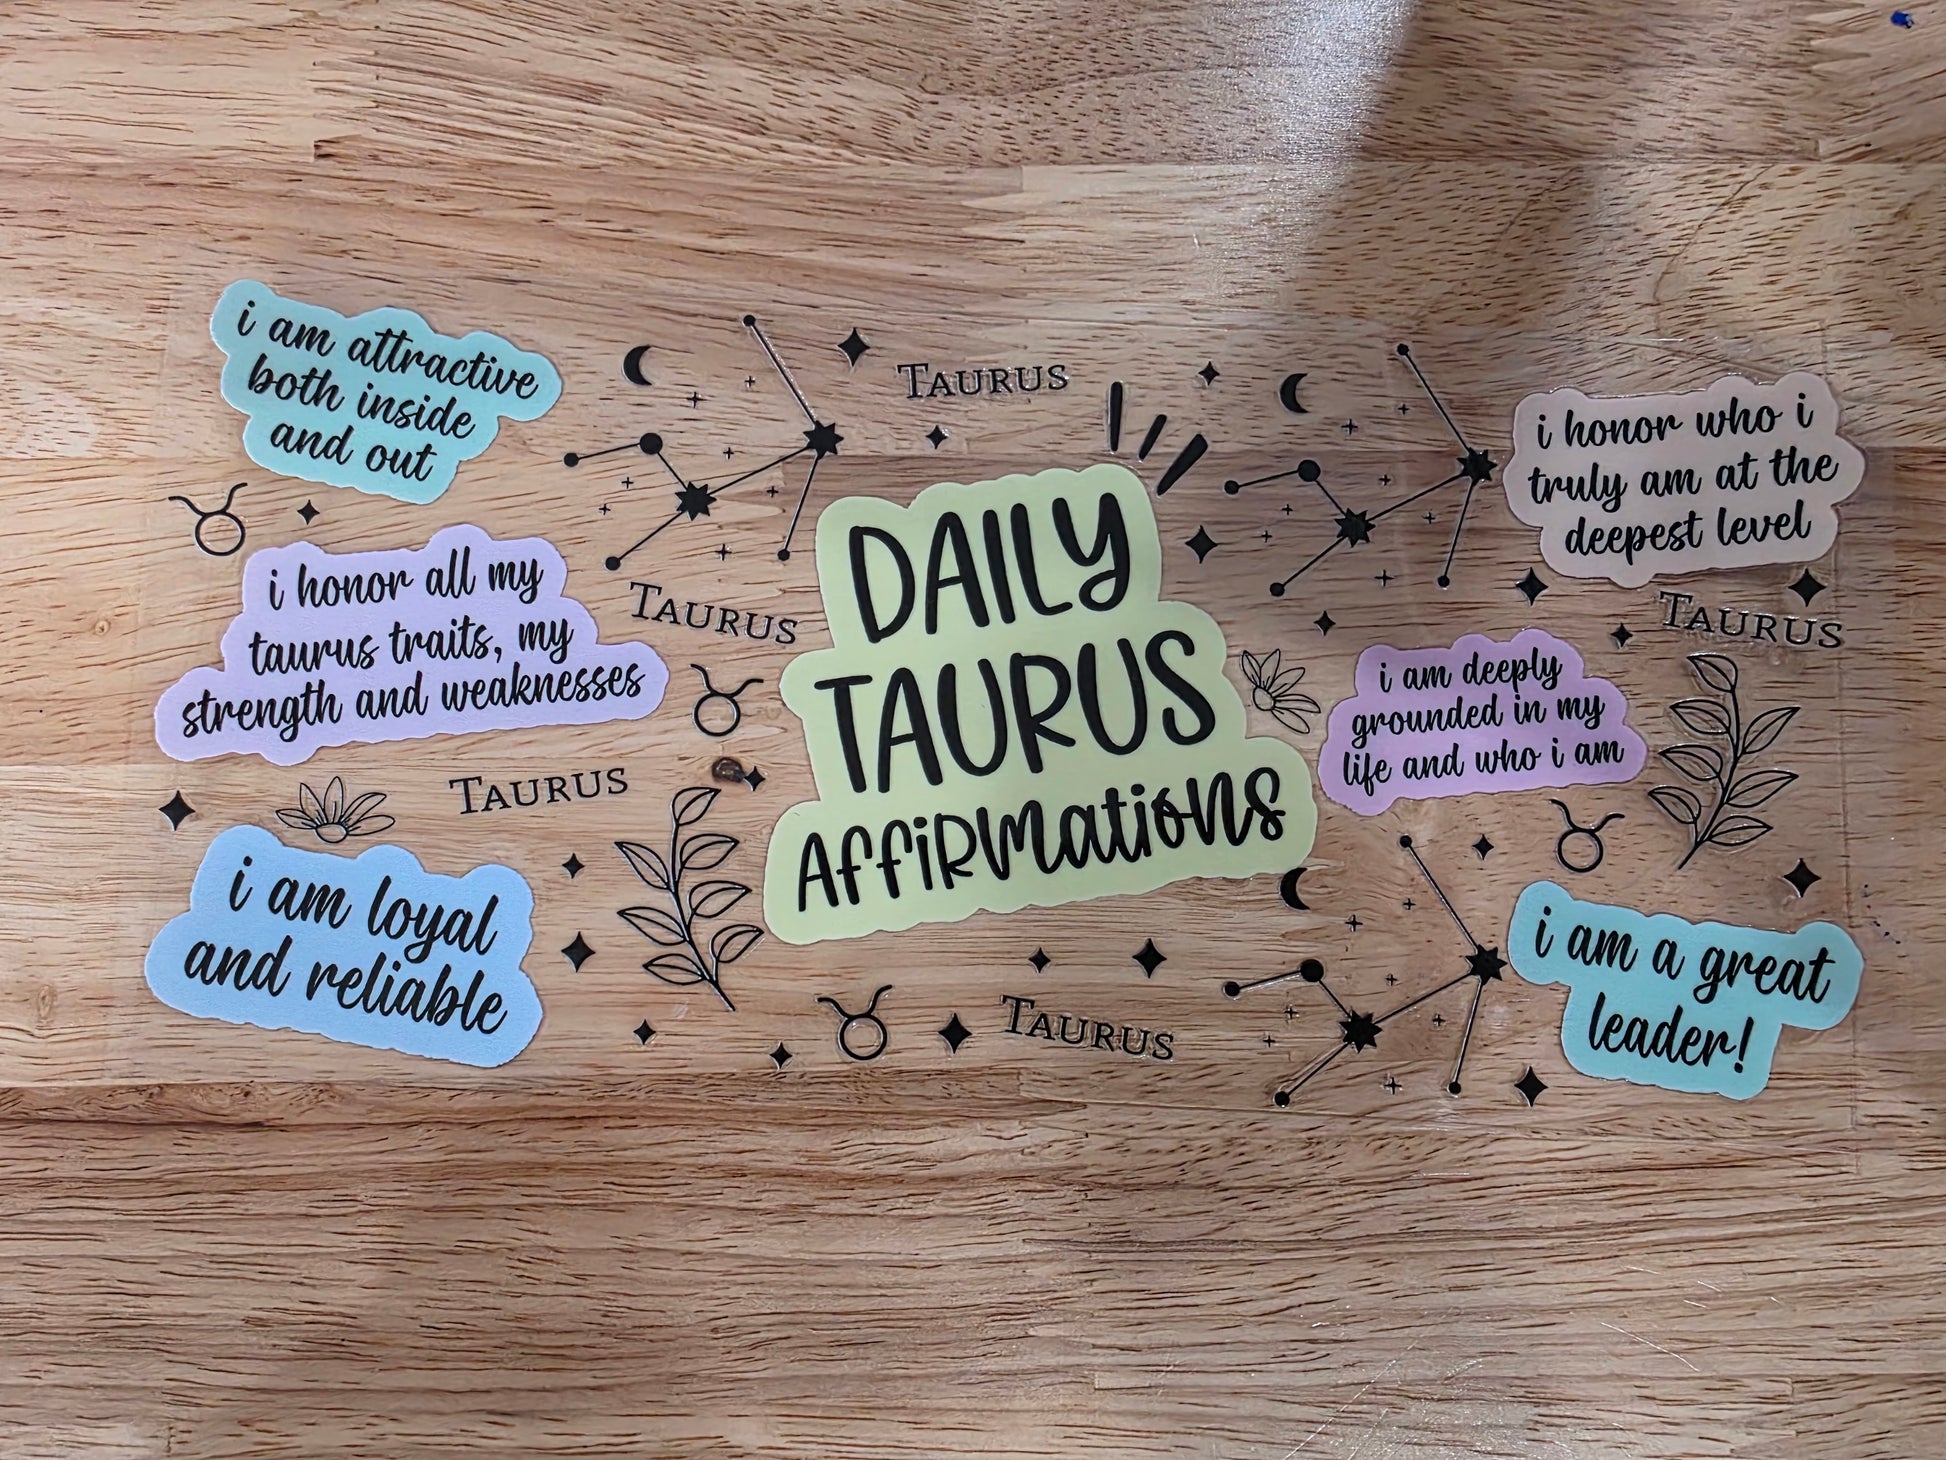 i am attractive
both inside
and out
TAURUS
i honor who i
truly am at the
deepest level
i honor all my
taurus traits, my
strength and weaknesses
TAURUS
DAILY
TAURUS
AFFiRMatioNs
TAURUS
i am deeply
grounded in my
life and who i am
TAURUS
i am loyal
and reliable
TAURUS
i am a great
leader!